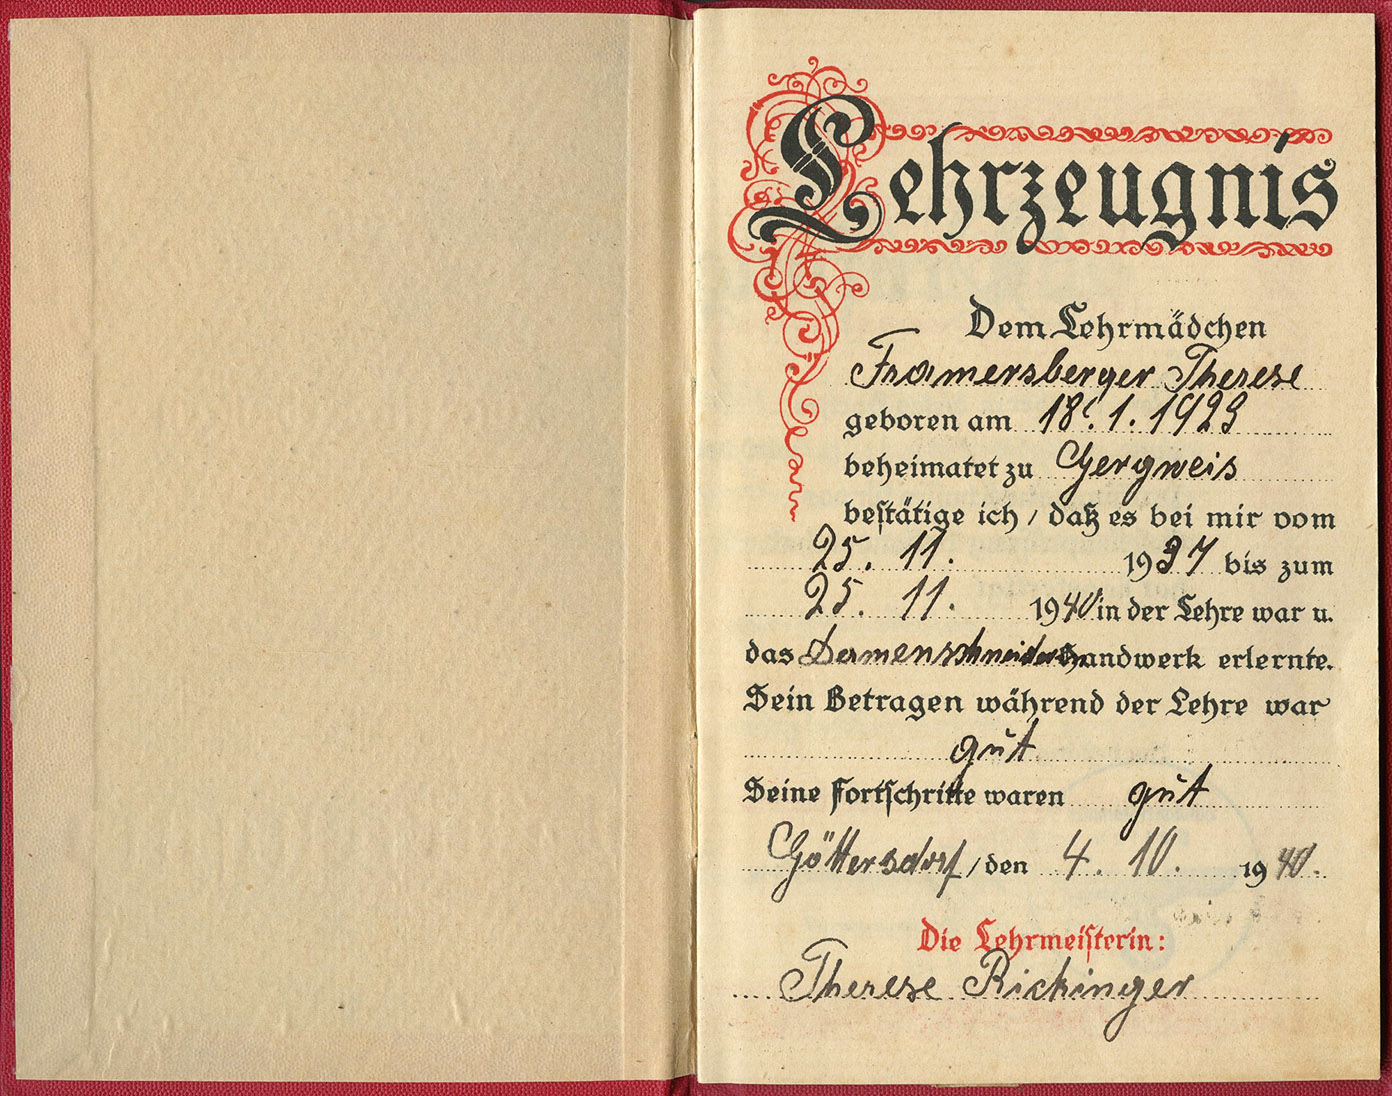 Lehrzeugnis
Dem Lehrmädchen
Framersberger Therese
geboren am 18. 1. 1923
beheimatet zu Gergweis
bestätige ich, daß es bei mir vom
25. 11. 1937 bis zum
25. 11. 1940 in der Lehre war u.
das Damenschneider Handwerk erlernte.
Sein Betragen während der Lehre war
gut
Seine Fortschritte waren gut
Göttersdorf, den 4. 10. 1940.
Die Lehrmeisterin:
Therese Rickinger